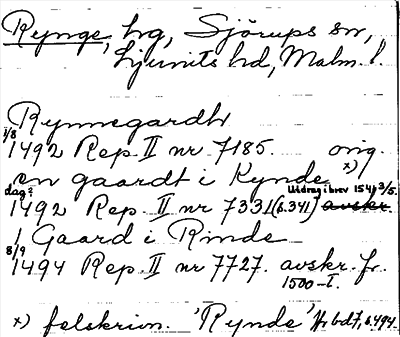 Rynge, hg, Sjörups sn,
Ljunits hd, Malm. l.
Rynnegardh
1/8 1492 Rep. II nr 7185. orig.
en gaardt i Kynde x)
dag? 1492 Rep. II nr 7331 (s.341) Utdrag i brev 1541 3/5. avskr.
1 Gaard i Rinde
8/9 1494 Rep. II nr 7727. avskr. fr.
1500-t.
x) felskrivn. 'Rynde' hr bd 7, s. 494.